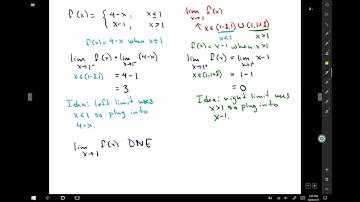 f(x) = { 4-x, x≤1
x-1, x>1
f(x)=4-x when x≤1
lim x→1⁻ f(x) = lim x→1⁻ (4-x)
x∈(1-2,1) = 4-1
= 3
Idea: left limit uses
x<1 so plug into
4-x.
lim x→1 f(x) DNE
lim x→1 f(x)
x∈(1-2,1) ∪ (1,1+2)
x<1 x>1
f(x)=x-1 when x>1
lim x→1⁺ f(x) = lim x→1⁺ x-1
x∈(1,1+2) = 1-1
= 0
Idea: right limit uses
x>1 so plug into
x-1.